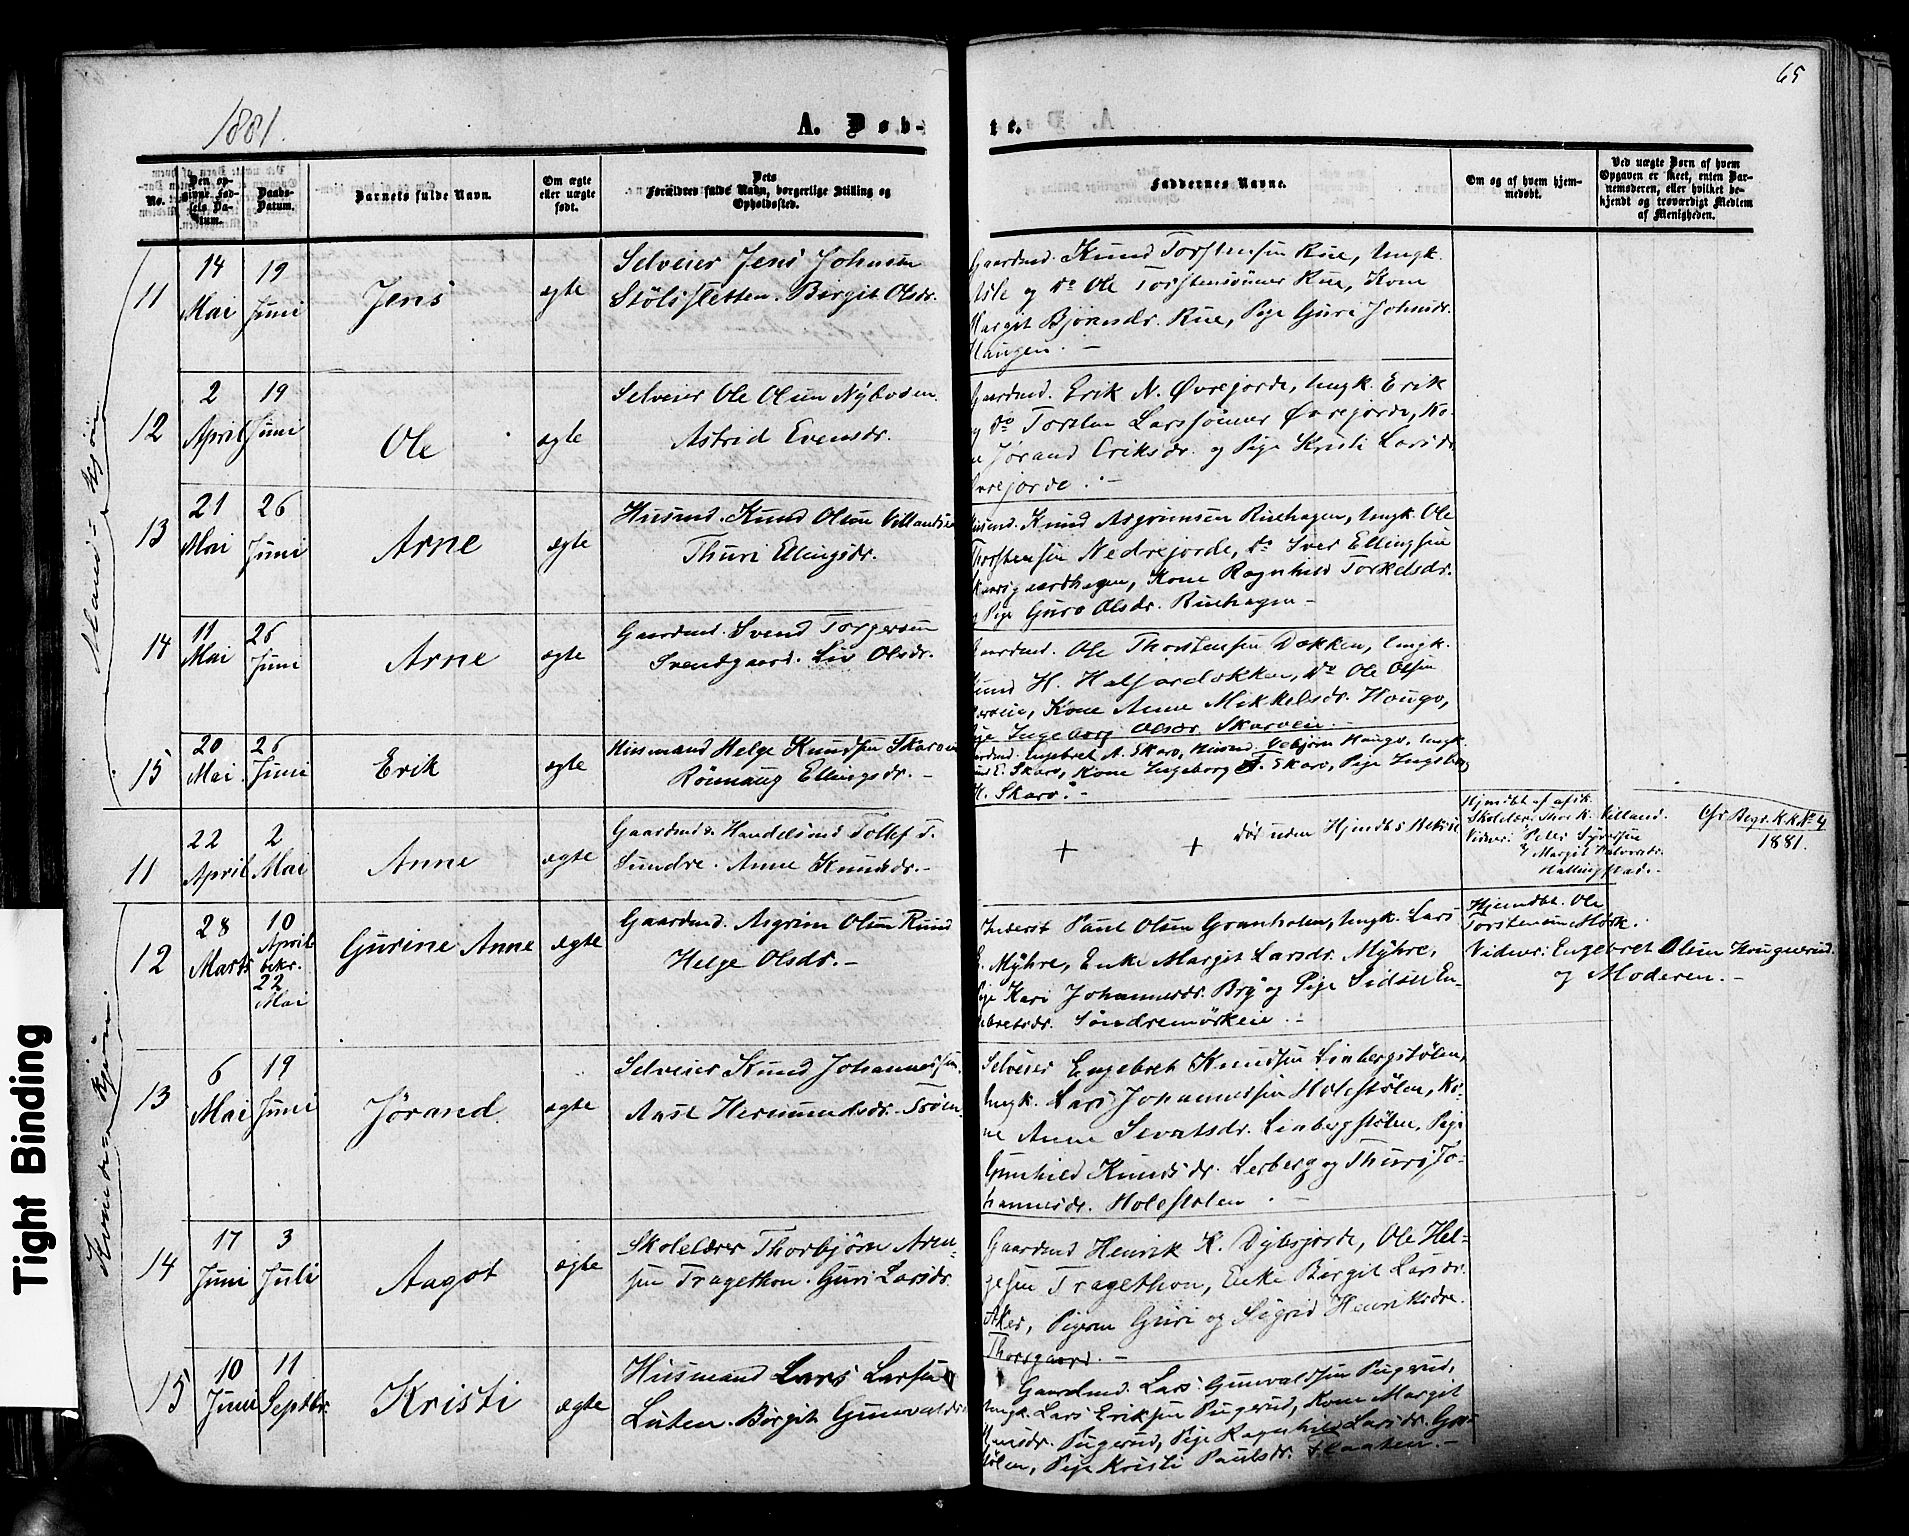 1881.
65
A. Døb-
te.
No.
Den op-
givne Fød-
sels Da-
tum.
Daabs-
Datum.
Barnets fulde Navn.
Om ægte
eller uægte
født.
Dets
Forældres fulde Navn, borgerlige Stilling og
Opholdssted.
Faddernes Navne.
Om og af hvem hjem-
medøbt.
Ved uægte Børn af hvem
Opgaven er skeet, enten Bar-
nemoderen, eller hvilket be-
kjendt og troværdigt Medlem
af Menigheden.
Mand-Kjøn
11
14
Mai
19
Juni
Jens
ægte
Selveier Jens Johnsen
Stølsletten. Birgit Olsdr.
Gaardmd. Knud Torstensen Rue, Ungk.
Asle og do Ole Torstensønner Rue, Kone
Margit Bjørnsdr. Rue, Pige Guri Johnsdr.
Haugen. -
12
2
April
19
Juni
Ole
ægte
Selveier Ole Olsen Nyboden
Astrid Evensdr.
Gaardmd. Erik N. Øvrejorde, Ungk. Erik
og do Torsten Larssønner Øvrejorde, Ko-
ne Jørand Eriksdr. og Pige Kristi Larsdr.
Øvrejorde. -
13
21
Mai
26
Juni
Arne
ægte
Husmd. Knud Olsen Villandseie
Thuri Ellingsdr.
Husmd. Knud Asgrimsen Ruehagen, Ungk. Ole
Thorstensen Nedrejorde, do Iver Ellingsen
hagen, Kone Ragnhild Torkelsdr.
og Pige Guro Olsdr. Ruehagen -
14
11
Mai
26
Juni
Arne
ægte
Gaardmd. Svend Torgersen
Svendsgaard. Liv Olsdr.
Gaardmd. Ole Thorstensen Dokken, Ungk.
Knud H. do Ole Olsen
Kone Anne Mikkelsdr. Hougo,
Pige Ingeborg Olsdr. Skaroeie. -
15
20
Mai
26
Juni
Erik
ægte
Husmand Helge Knudsen Skaroeie
Rønnaug Ellingsdr. -
Gaardmd. Engebret A. Skaro, Husmd. Vebjørn Haugo, Ungk.
E. Skaro, Kone Ingeborg T. Skaro, Pige Ingeborg
H. Skaro. -
11
22
April
2
Mai
Anne
ægte
Gaardmd. & Handelsmd. Tollef T.
Sundre. Anne Knudsdr. -
+ + Død uden Hjmdbs Bekræf
Hjemdbt af afsk.
Skolelær. Thor K. Villand.
Vidner: Peter
& Margit Halvorsdr.
Cfr Begr. K.K. No 4
1881.
Kvinde-Kjøn.
12
28
Marts
10
April
bekr.
22
Mai
Gurine Anne
ægte
Gaardmd. Asgrim Olsen Ruud
Helge Olsdr. -
Inderst Paul Olsen Granholen, Ungk. Lars
E. Myhre, Enke Margit Larsdr. Myhre,
Pige Kari Johannesdr. Bry og Pige Sidsel En-
gebretsdr. Søndremørkeie. -
Hjemdbt. Ole
Torstensen Mørk.
Vidner: Engebret Olsen Haugerud
og Moderen. -
13
6
Mai
19
Juni
Jørand
ægte
Selveier Knud Johannessen.
Aase Hermundsdr. Trøen
Selveier Engebret Knudsen Linbergstølen,
Ungk. Lars Johannessen Holestølen, Ko-
ne Anne Sevatsdr. Linbergstølen, Pige
Gunhild Knudsdr. Lerberg og Thuri Jo-
hannesdr. Holestølen. -
14
17
Juni
3
Juli
Aagot
ægte
Skolelærer Thorbjørn Arne-
sen Tragethon. Guri Larsdr.
Gaardmd Henrik K. Dybsjorde, Ole Hel-
gesen Tragethon, Enke Birgit Larsdr.
Aker, Pigerne Guri og Sigrid Henriksdre.
Thorsgaard. -
15
10
Juni
11
Septbr.
Kristi
ægte
Husmand Lars Larsen
Luten. Birgit Gunvaldsdr.
Gaardmd. Lars Gunvaldsen Pugerud,
Ungk. Lars Eriksen Pugerud, Kone Margit
Jensdr. Pugerud, Pige Ragnhild Larsdr.
Pige Kristi Paulsdr. Flaaten. -
Tight Binding